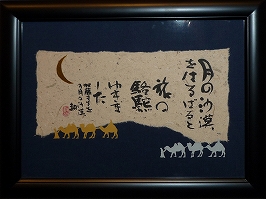 月の沙漠
をはるばると
旅の
駱駝
ゆきま
した